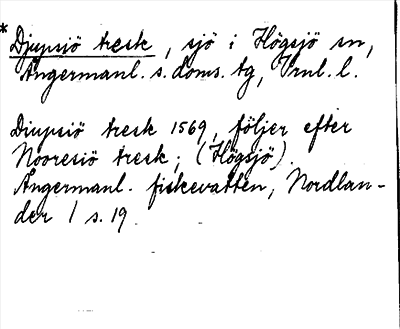 * Djupsjö tresk, sjö i Högsjö sn,
Ångermanl. s. doms. tg, Vrnl. l.
Diupsiö tresk 1569, följer efter
Nooresiö tresk; (Högsjö).
Ångermanl. fiskevatten, Nordlan-
der 1 s. 19.